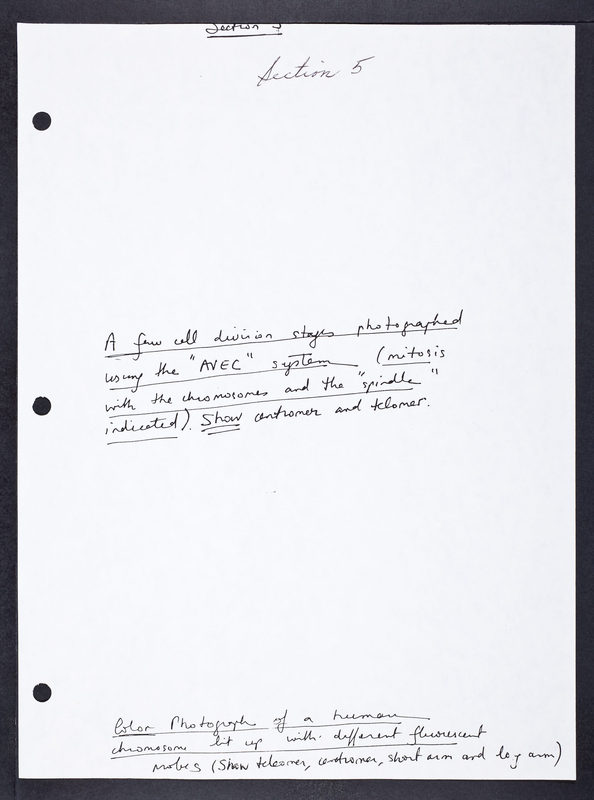 Section 5
Section 5
A few cell division stages photographed
using the "AVEC" system (mitosis
with the chromosomes and the "spindle"
indicated). Show centromer and telomer.
Color Photograph of a human
chromosome lit up with different fluorescent
probes (Show telomer, centromer, short arm and long arm)